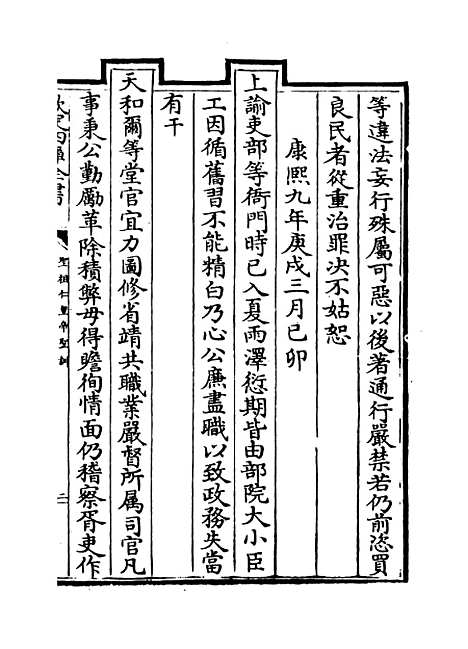 等違法妄行殊屬可惡以後著通行嚴禁若仍前恣買
良民者從重治罪决不姑恕
康熙九年庚戌三月己卯
上諭吏部等衙門時已入夏雨澤愆期皆由部院大小臣
工因循舊習不能精白乃心公廉盡職以致政務失當
有干
天和爾等堂官宜力圖修省靖共職業嚴督所属司官凡
事秉公勤勵革除積弊毋得瞻徇情面仍稽察胥吏作
欽定四庫全書
聖祖仁皇帝聖訓
二